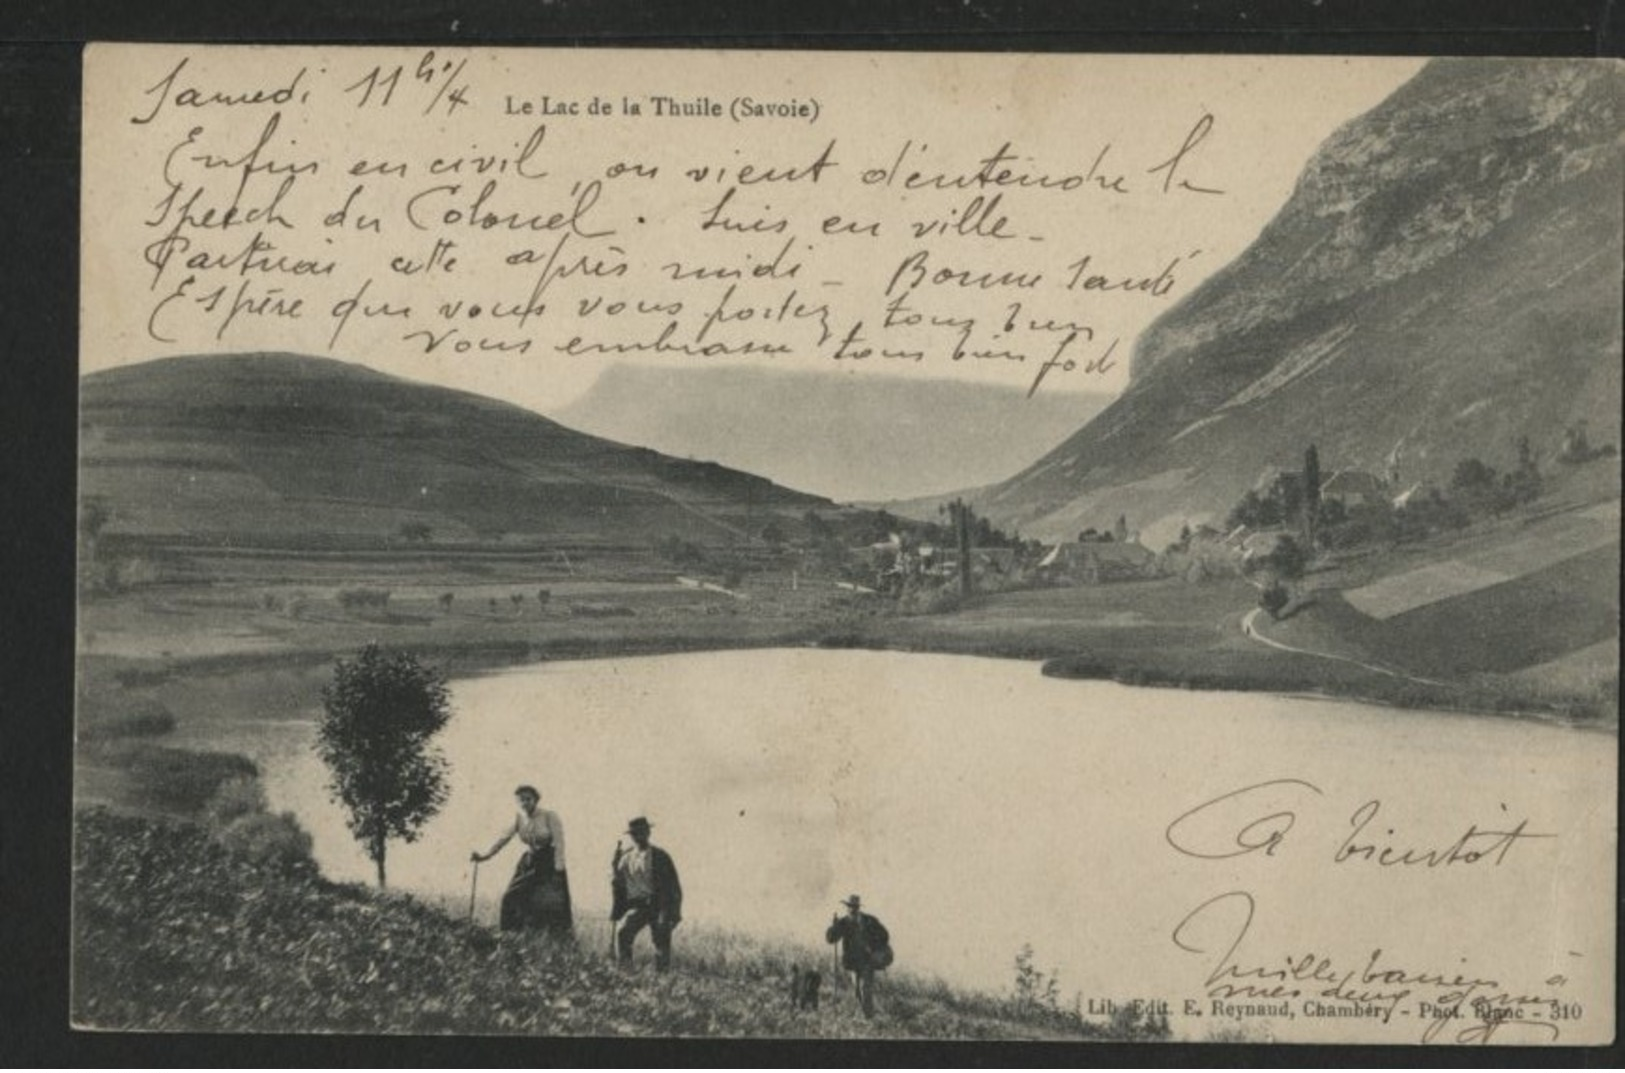 Samedi 11h 1/4
Le Lac de la Thuile (Savoie)
Enfin en civil, on vient d'entendre le
Speech du Colonel. Suis en ville -
Partirai cette après midi - Bonne santé
Espère que vous vous portez tous bien
Vous embrasse tous bien fort
A bientôt
Mille baisers à
mes deux
Lib. Edit. E. Reynaud, Chambéry - Phot. Blanc - 310